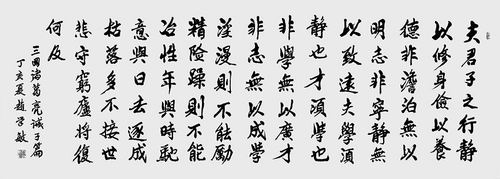 夫君子之行静
以修身儉以養
德非澹泊無以
明志非寧静無
以致遠夫學須
静也才須學也
非學無以廣才
非志無以成學
淫漫則不能勵
精險躁則不能
冶性年與時馳
意與日去遂成
枯落多不接世
悲守窮廬將復
何及
三國諸葛亮誡子篇
丁亥夏趙學敏